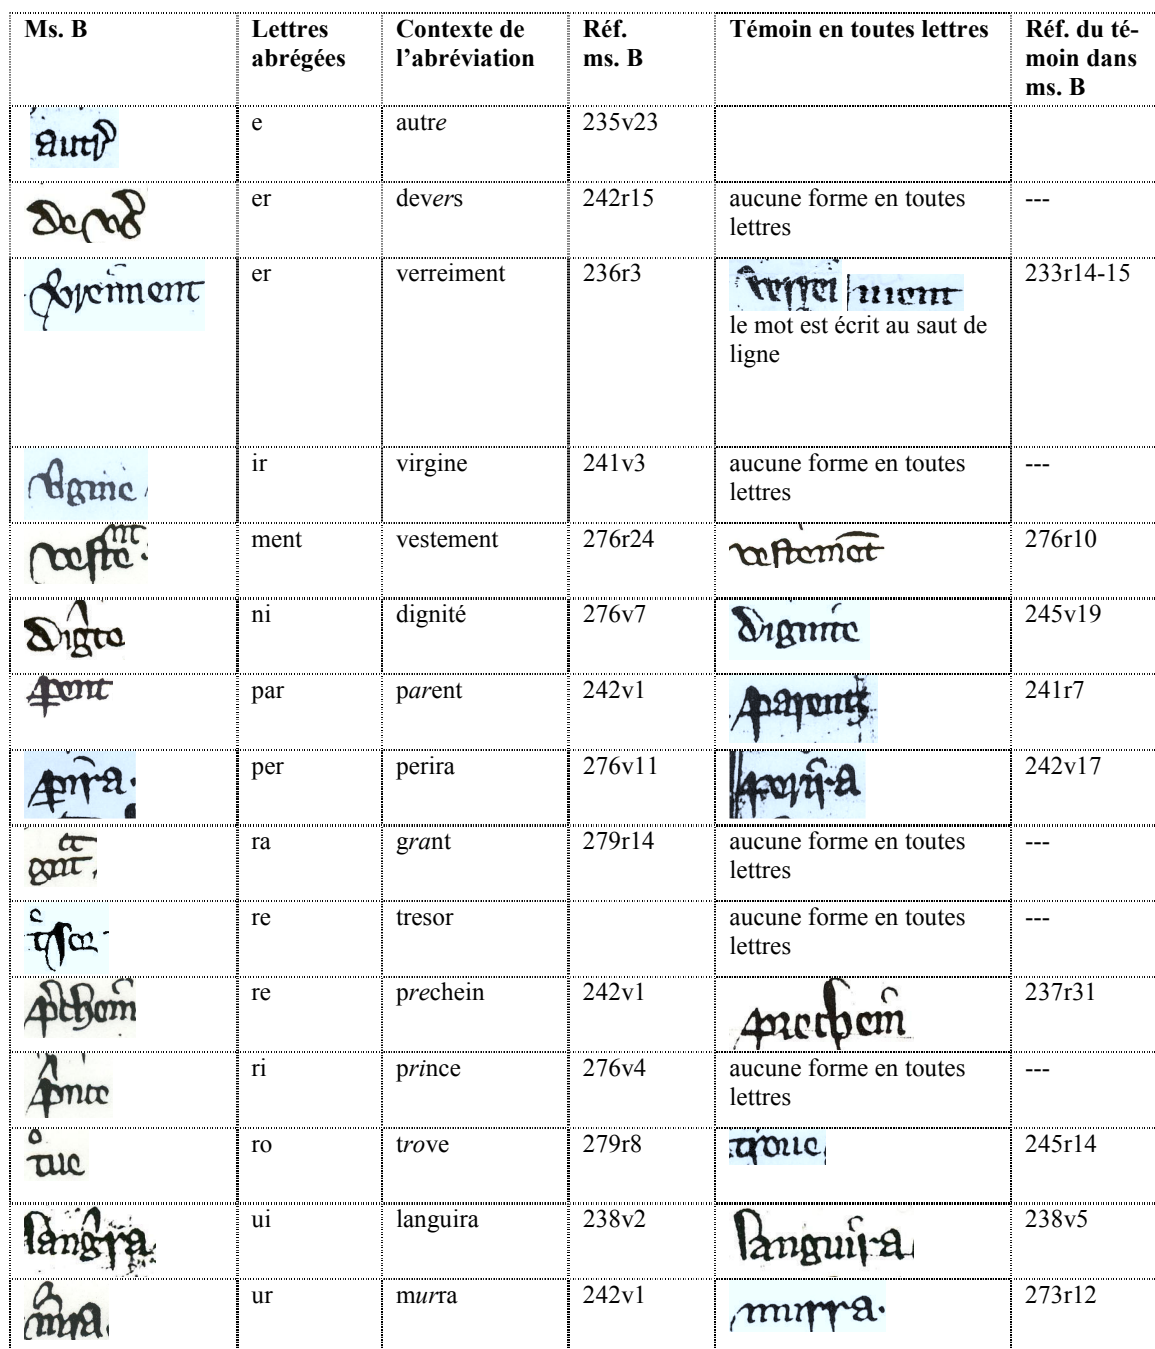 Ms. B Lettres abrégées Contexte de l’abréviation Réf. ms. B Témoin en toutes lettres Réf. du té-moin dans ms. B
e autre 235v23
er devers 242r15 aucune forme en toutes lettres ---
er verreiment 236r3 verrei ment 233r14-15
le mot est écrit au saut de ligne
ir virgine 241v3 aucune forme en toutes lettres ---
ment vestement 276r24 276r10
ni dignité 276v7 dignite 245v19
par parent 242v1 241r7
per perira 276v11 perira 242v17
ra grant 279r14 aucune forme en toutes lettres ---
re tresor aucune forme en toutes lettres ---
re prechein 242v1 prechein 237r31
ri prince 276v4 aucune forme en toutes lettres ---
ro trove 279r8 troue 245r14
ui languira 238v2 languira 238v5
ur murra 242v1 murra. 273r12